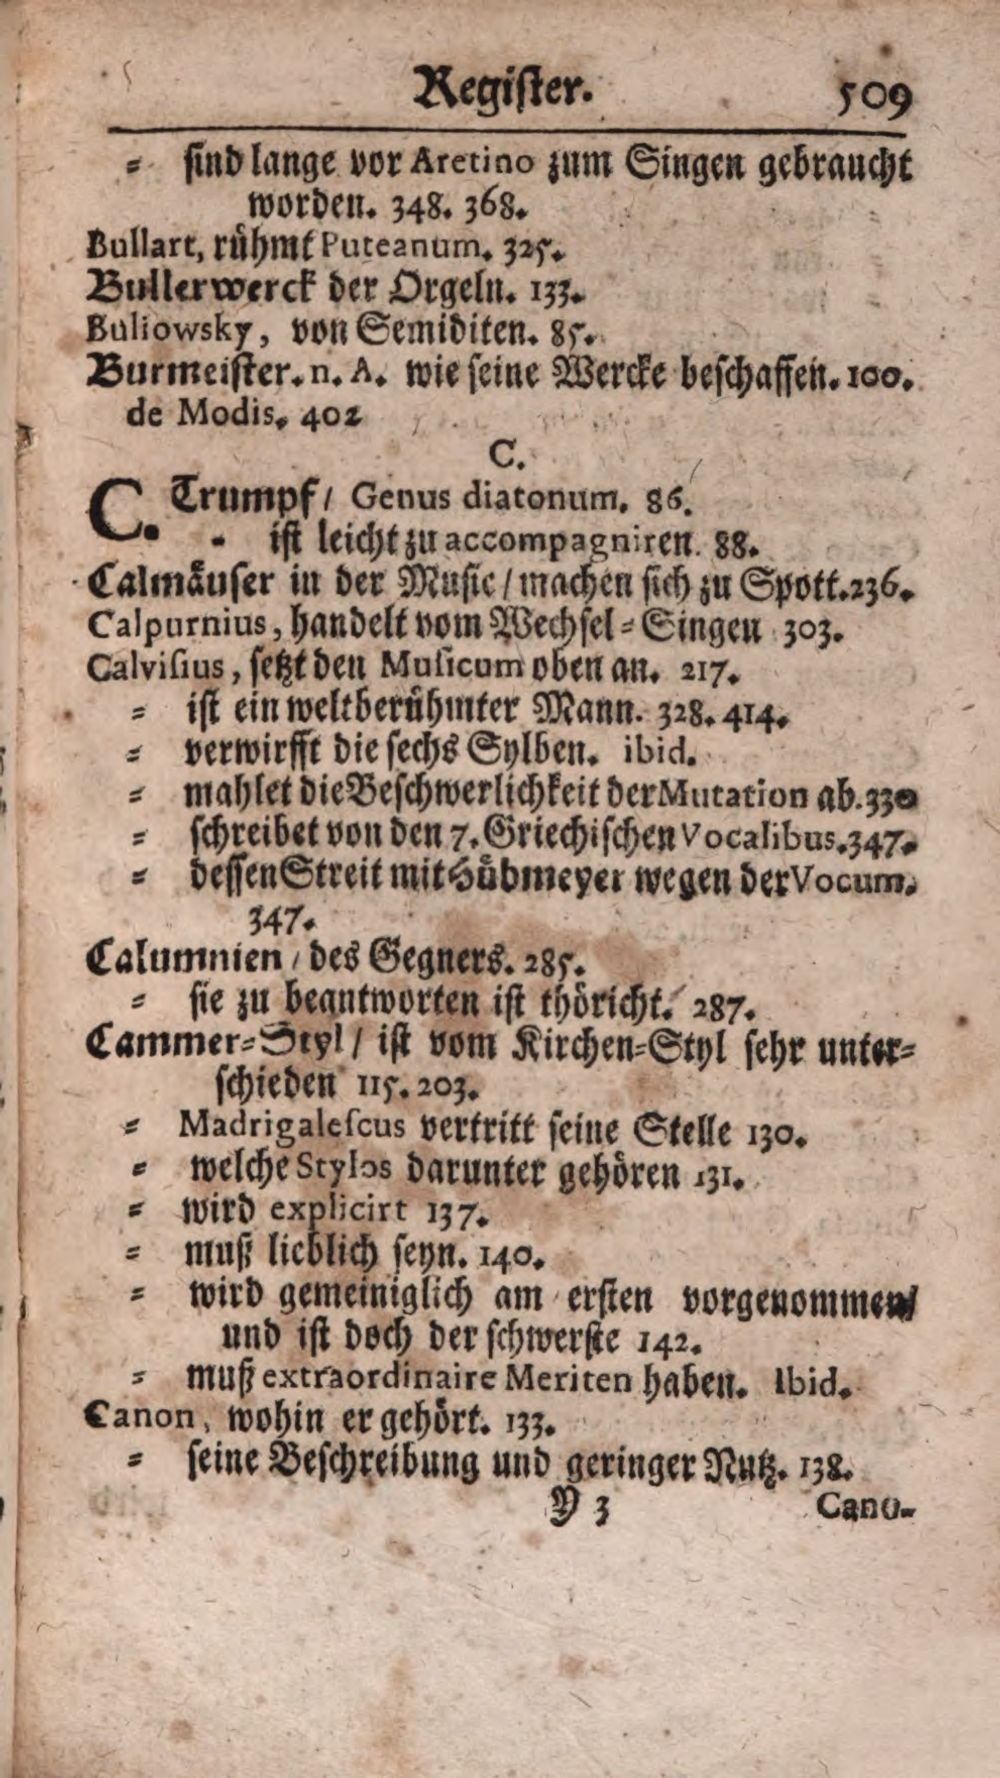 Register. 509
⸗ sind lange vor Aretino zum Singen gebraucht
worden. 348. 368.
Bullart, rühmt Puteanum. 325.
Bullerwerck der Orgeln. 133.
Buliowsky, von Semiditen. 85.
Burmeister. n. A. wie seine Wercke beschaffen. 100.
de Modis. 402
C.
C. Trumpf / Genus diatonum. 86.
- ist leicht zu accompagniren. 88.
Calmäuser in der Music / machen sich zu Spott. 236.
Calpurnius, handelt vom Wechsel⸗Singen 303.
Calvisius, setzt den Musicum oben an. 217.
⸗ ist ein weltberühmter Mann. 328. 414.
⸗ verwirfft die sechs Sylben. ibid.
⸗ mahlet die Beschwerlichkeit der Mutation ab. 330
⸗ schreibet von den 7. Griechischen Vocalibus. 347.
⸗ dessen Streit mit Hübmeyer wegen der Vocum.
347.
Calumnien / des Gegners. 285.
⸗ sie zu beantworten ist thöricht. 287.
Cammer⸗Styl / ist vom Kirchen⸗Styl sehr unter⸗
schieden 115. 203.
⸗ Madrigalescus vertritt seine Stelle 130.
⸗ welche Stylos darunter gehören 131.
⸗ wird explicirt 137.
⸗ muß lieblich seyn. 140.
⸗ wird gemeiniglich am ersten vorgenommen/
und ist doch der schwerste 142.
⸗ muß extraordinaire Meriten haben. Ibid.
Canon, wohin er gehört. 133.
⸗ seine Beschreibung und geringer Nutz. 138.
Y 3 Cano-